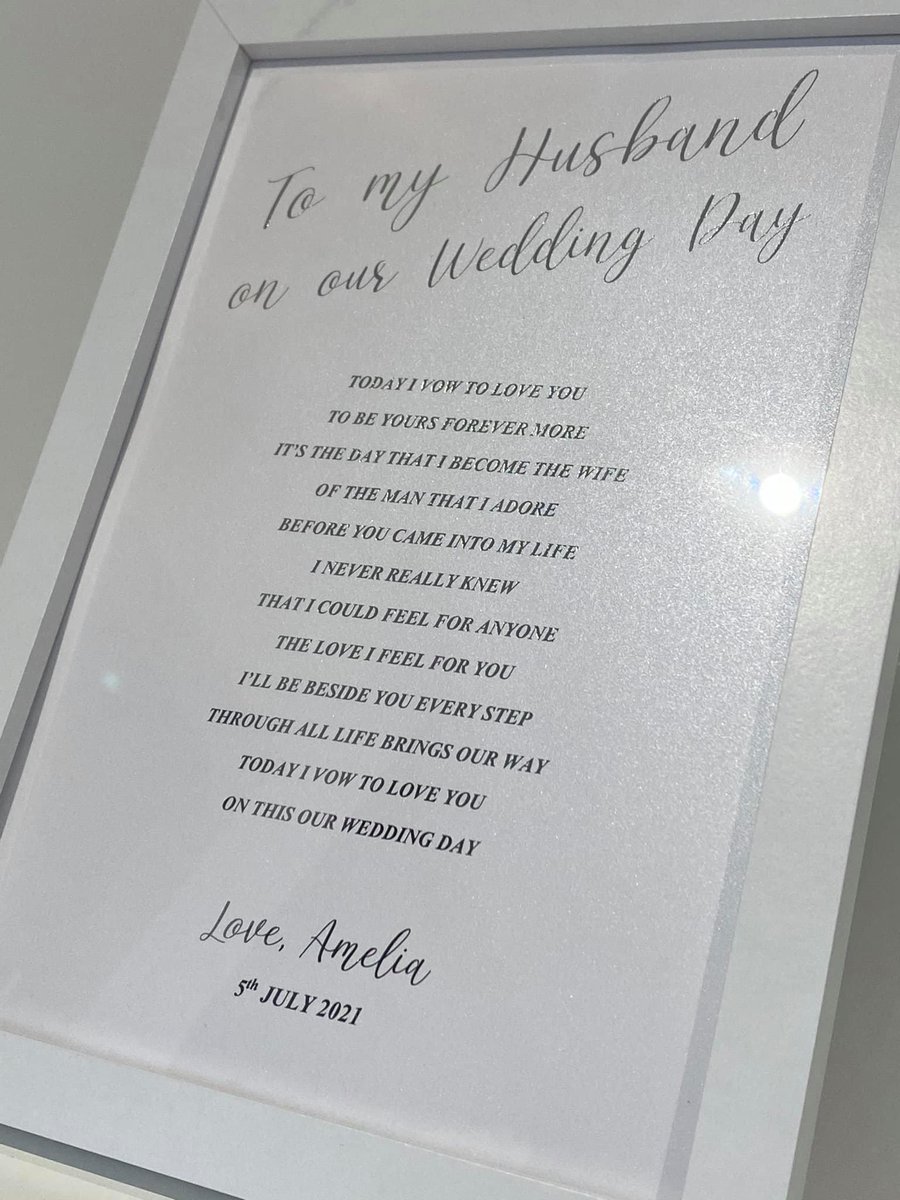 To my Husband
on our Wedding Day
TODAY I VOW TO LOVE YOU
TO BE YOURS FOREVER MORE
IT'S THE DAY THAT I BECOME THE WIFE
OF THE MAN THAT I ADORE
BEFORE YOU CAME INTO MY LIFE
I NEVER REALLY KNEW
THAT I COULD FEEL FOR ANYONE
THE LOVE I FEEL FOR YOU
I'LL BE BESIDE YOU EVERY STEP
THROUGH ALL LIFE BRINGS OUR WAY
TODAY I VOW TO LOVE YOU
ON THIS OUR WEDDING DAY
Love, Amelia
5th JULY 2021